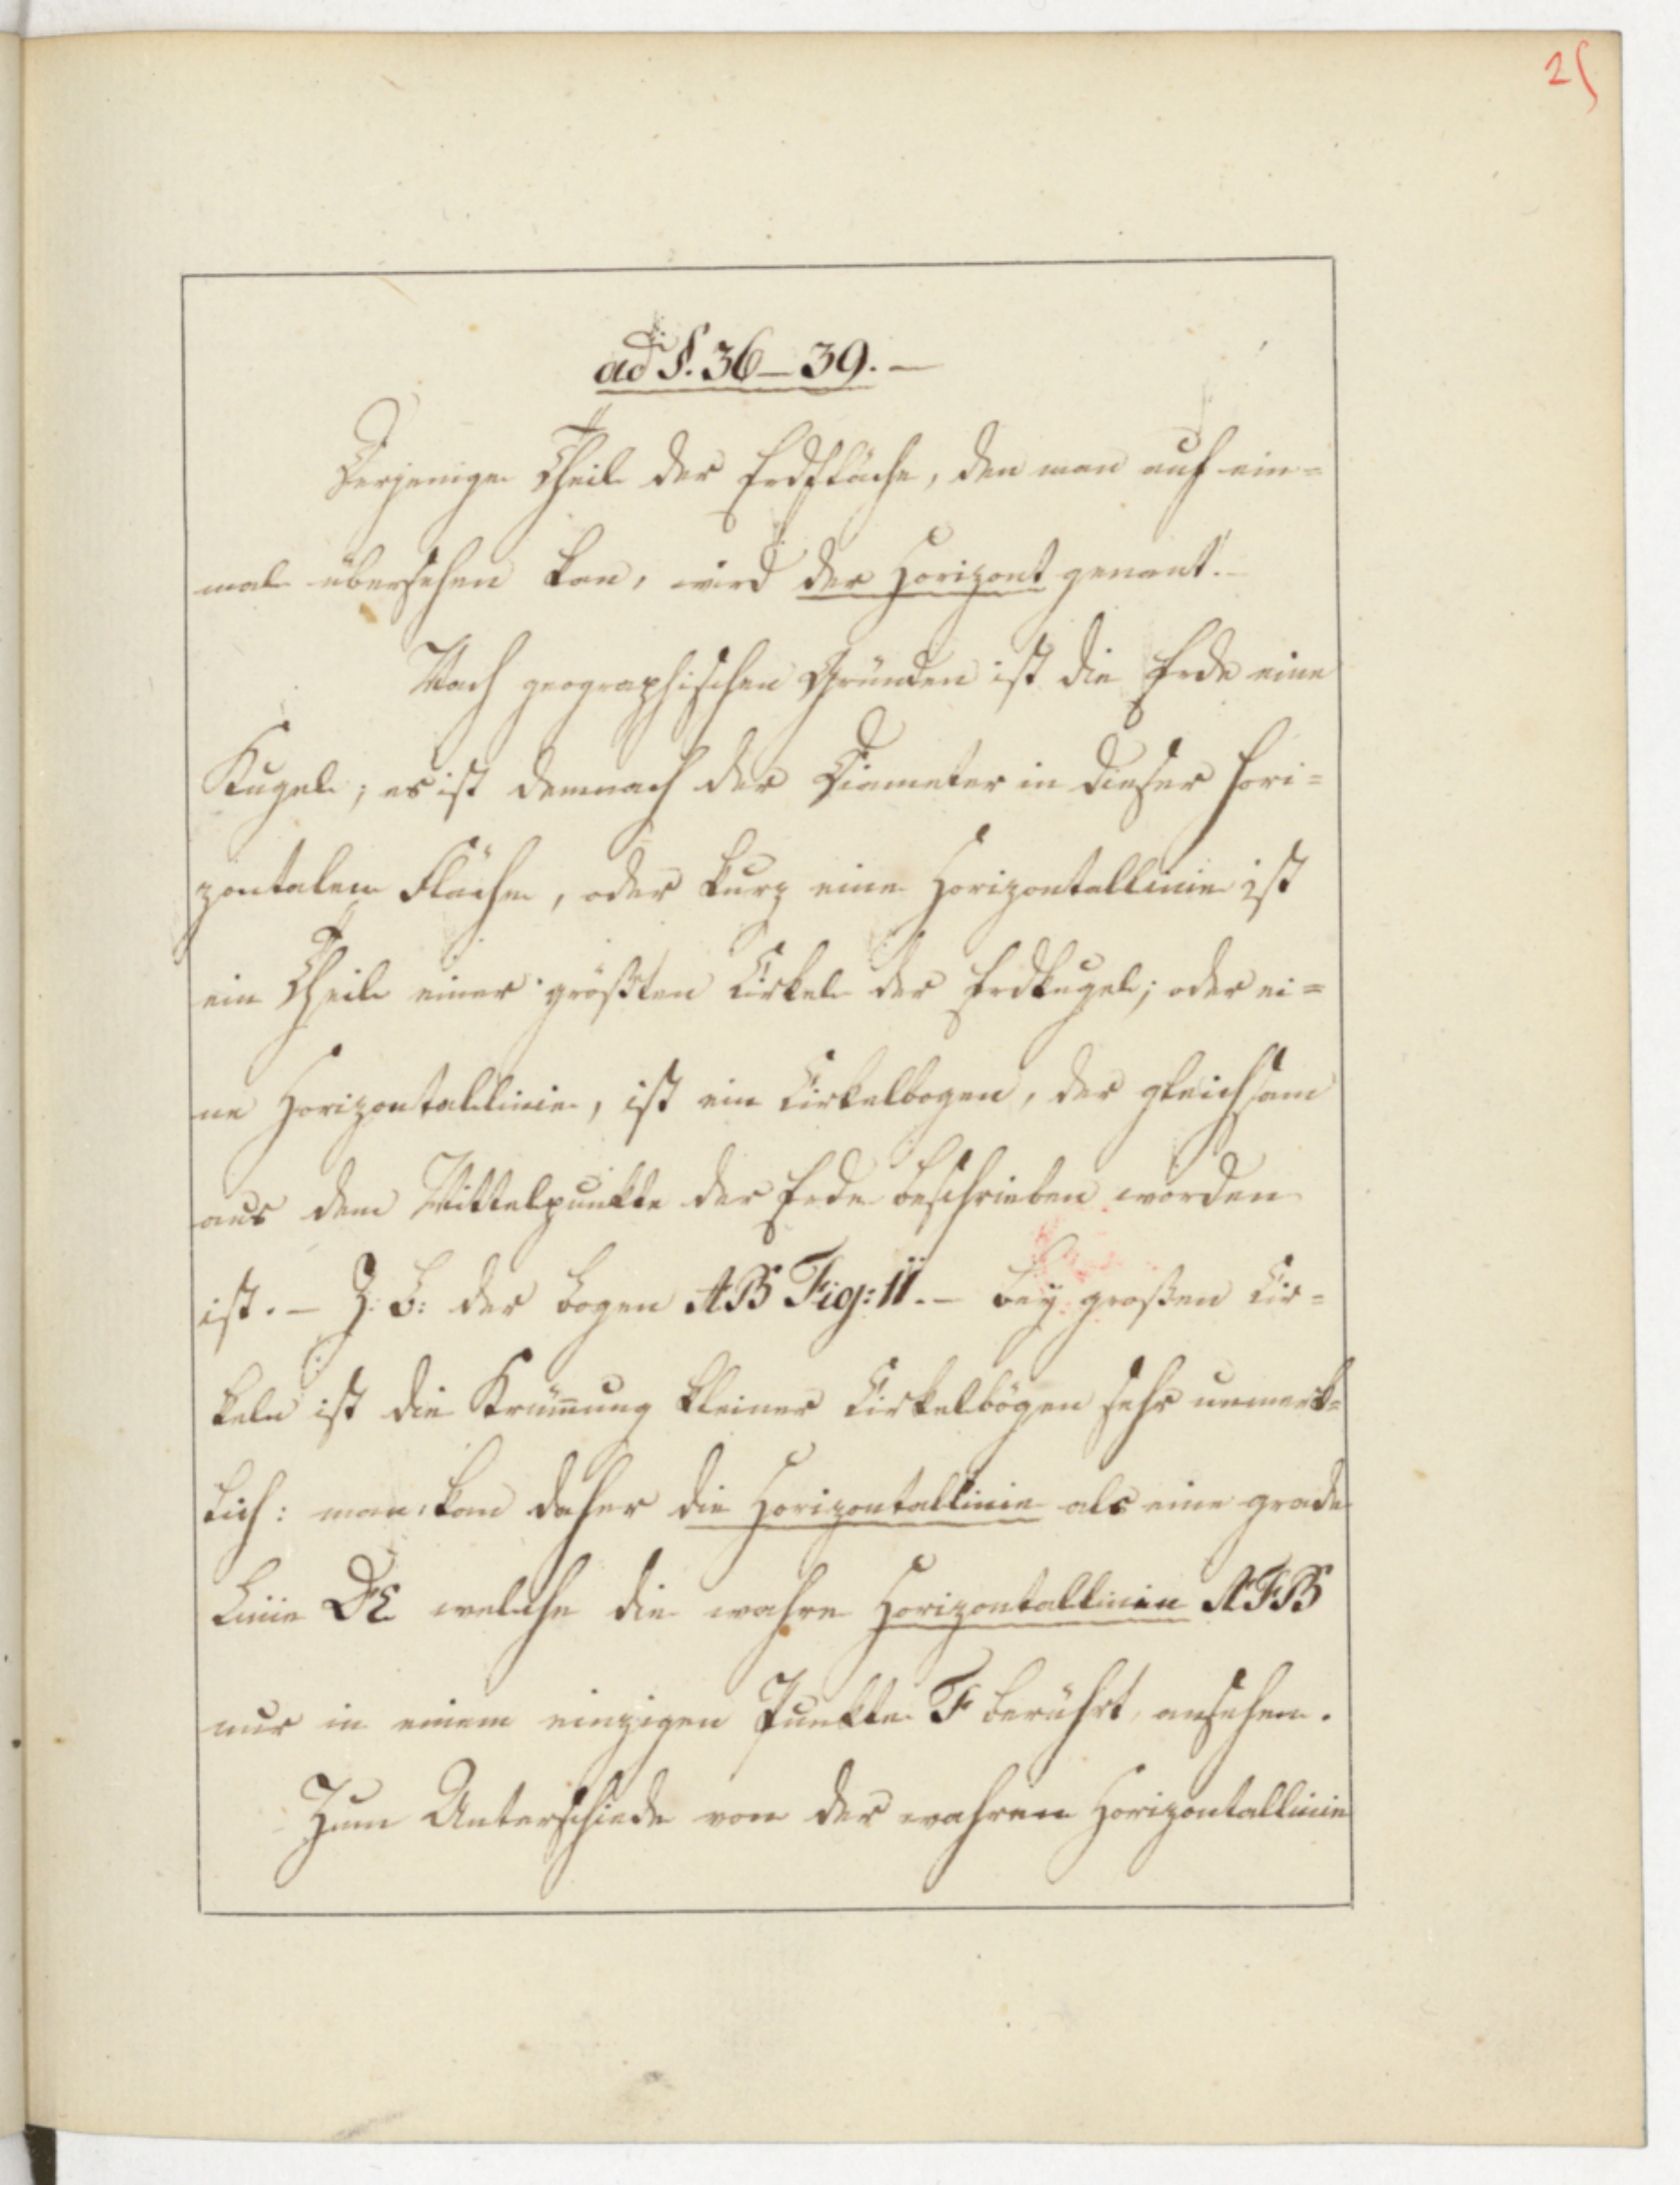 25
ad §. 36–39. –
Derjenige Theil der Erdfläche, den man auf ein=
mal übersehen kan, wird der Horizont genant. –
Nach geographischen Gründen ist die Erde eine
Kugel; es ist demnach der Diameter in dieser hori=
zontalen Fläche, oder kurz eine Horizontallinie ist
ein Theil einer größten Cirkel der Erdkugel; oder ei=
ne Horizontallinie, ist ein Cirkelbogen, der gleichsam
aus dem Mittelpunkte der Erde beschrieben worden
ist. – Z: B: der Bogen AB Fig: 11. – Bey großen Cir=
keln ist die Krüm̄ung kleiner Cirkelbögen sehr unmerk=
lich: man kan daher die Horizontallinie als eine grade
Linie DE welche die wahre Horizontallinie AFB
nur in einem einzigen Punkte F berührt, ansehen.
Zum Unterschiede von der wahren Horizontallinie